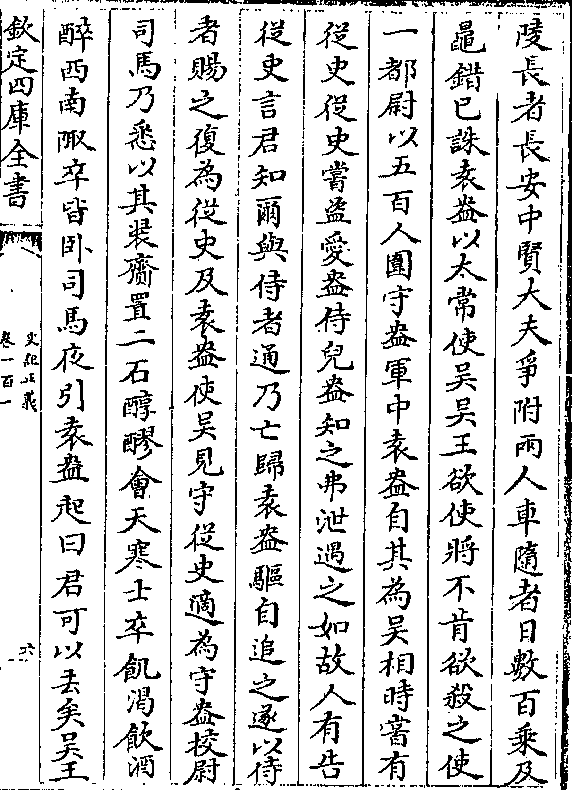 陵長者長安中賢大夫爭附兩人車隨者日數百乗及
鼂錯已誅袁盎以太常使吴吴王欲使將不肯欲殺之使
一都尉以五百人圍守盎軍中袁盎自其為吴相時嘗有
從史從史嘗盗愛盎侍兒盎知之弗泄遇之如故人有告
從史言君知爾與侍者通乃亡歸袁盎驅自追之遂以侍
者賜之復為從史及袁盎使吴見守從史適為守盎挍尉
司馬乃悉以其裝齎置二石醇醪會天寒士卒飢渴飲酒
醉西南陬卒皆卧司馬夜引袁盎起曰君可以去矣吴王
欽定四庫全書
史記正義
卷一百一
六